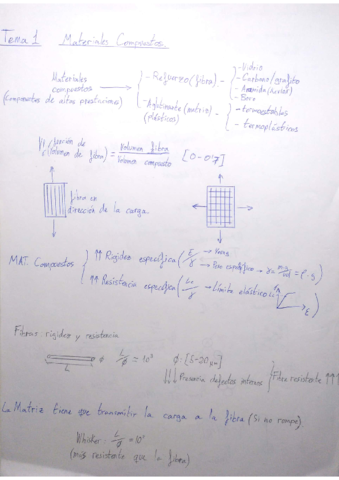 Tema 1 Materiales Compuestos
Materiales compuestos (Compuestos de altas prestaciones) →
- Refuerzo (fibra) →
- Vidrio
- Carbono/grafito
- Aramida (Kevlar)
- Boro
- Aglutinante (matriz) (plásticos) →
- termoestables
- termoplásticos
Vf (fracción de volumen de fibra) = Volumen fibra / Volumen compuesto [0-0'7]
fibra en dirección de la carga.
MAT. Compuestos
↑↑ Rigidez específica (E/γ → Young → Peso específico → γ = = ρ·g)
↑↑ Resistencia específica ( /γ → Límite elástico =
Fibras: rigidez y resistencia
L φ L/φ ≈ 10³ φ: [5-20 μm]
↓↓↓ Presencia defectos internos
Fibra resistente ↑↑↑
La Matriz tiene que transmitir la carga a la fibra (Si no rompe)
Whisker: L/φ = 10²
(más resistente que la fibra)